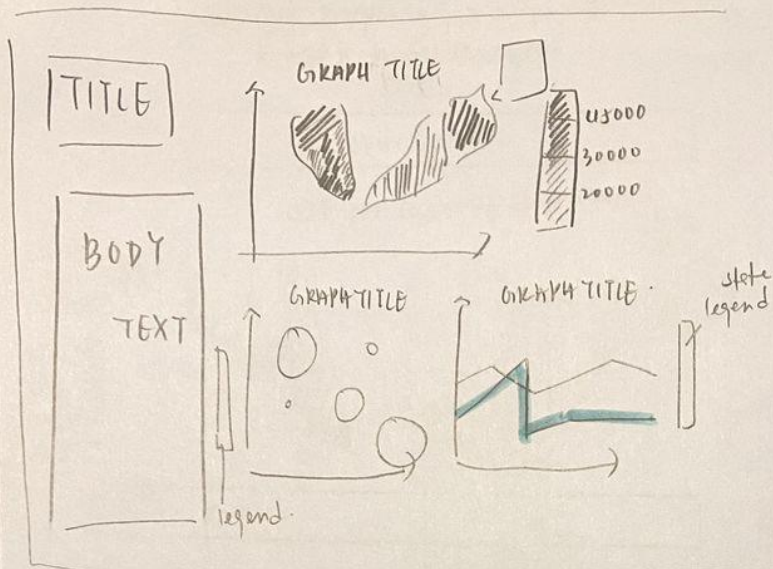 TITLE
GRAPH TITLE
45000
30000
20000
BODY
TEXT
GRAPH TITLE
GRAPH TITLE
state
legend
legend